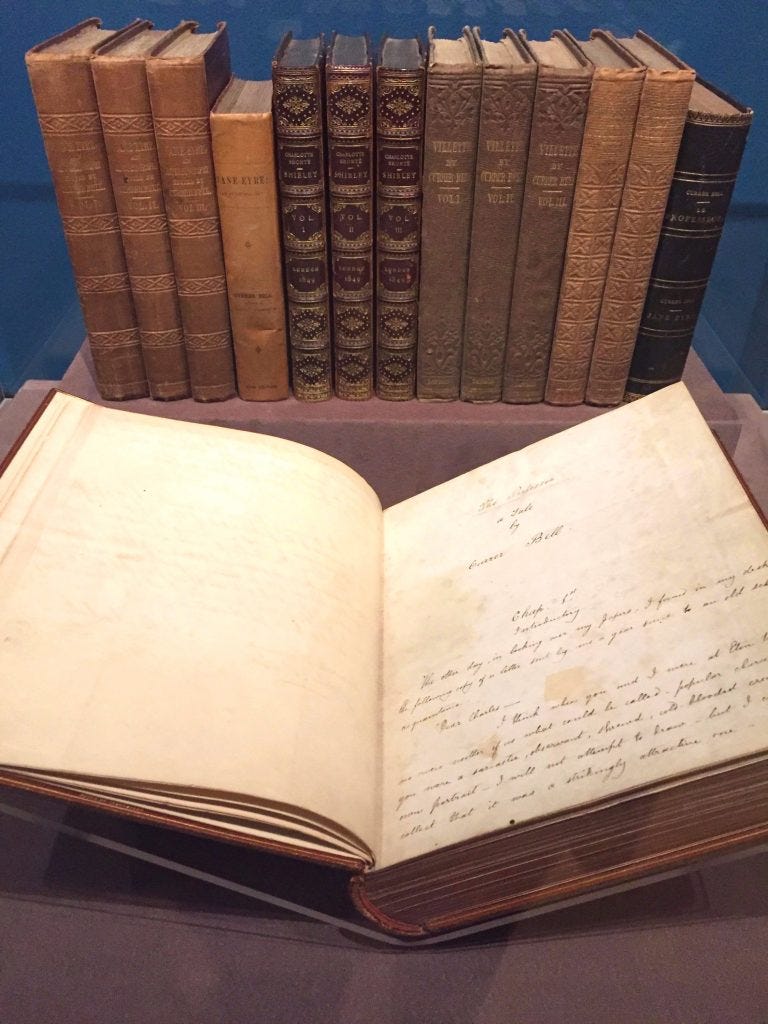 JANE EYRE
BY
VOL. I.
JANE EYRE
JANE EYRE
VOL. III.
JANE EYRE
CURRER BELL
CHARLOTTE
BRONTË
SHIRLEY
VOL
I
LONDON
1849
CHARLOTTE
BRONTË
SHIRLEY
VOL
II
LONDON
1849
CHARLOTTE
BRONTË
SHIRLEY
VOL
III
LONDON
1849
VILLETTE
BY
CURRER BELL
VOL. I.
VILLETTE
BY
CURRER BELL
VOL. II.
VILLETTE
BY
CURRER BELL
VOL. III.
CURRER BELL
LE
PROFESSEUR
CURRER BELL
JANE EYRE
The Professor
a Tale
by
Currer Bell
Chap. 1st
Introductory
The other day, in looking over my papers, I found in my desk
the following copy of a letter sent by me a year since to an old
acquaintance.
"Dear Charles—
I think when you and I were at Eton
we were neither of us what could be called popular
you were a sarcastic, observant, shrewd, cold-blooded
own portrait I will not attempt to draw — but I
collect that it was a strikingly attractive one —